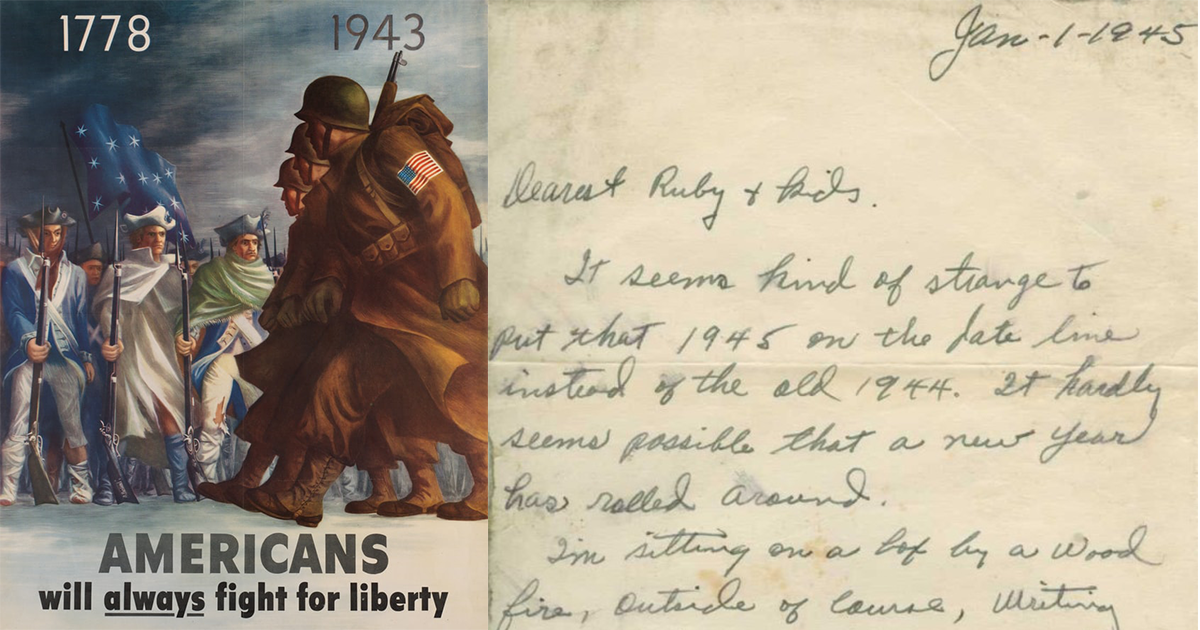 1778 1943
AMERICANS
will always fight for liberty
Jan-1-1945
Dearest Ruby & kids.
It seems kind of strange to
put that 1945 on the date line
instead of the old 1944. It hardly
seems possible that a new year
has rolled around.
I'm sitting on a box by a wood
fire, outside of course, writing